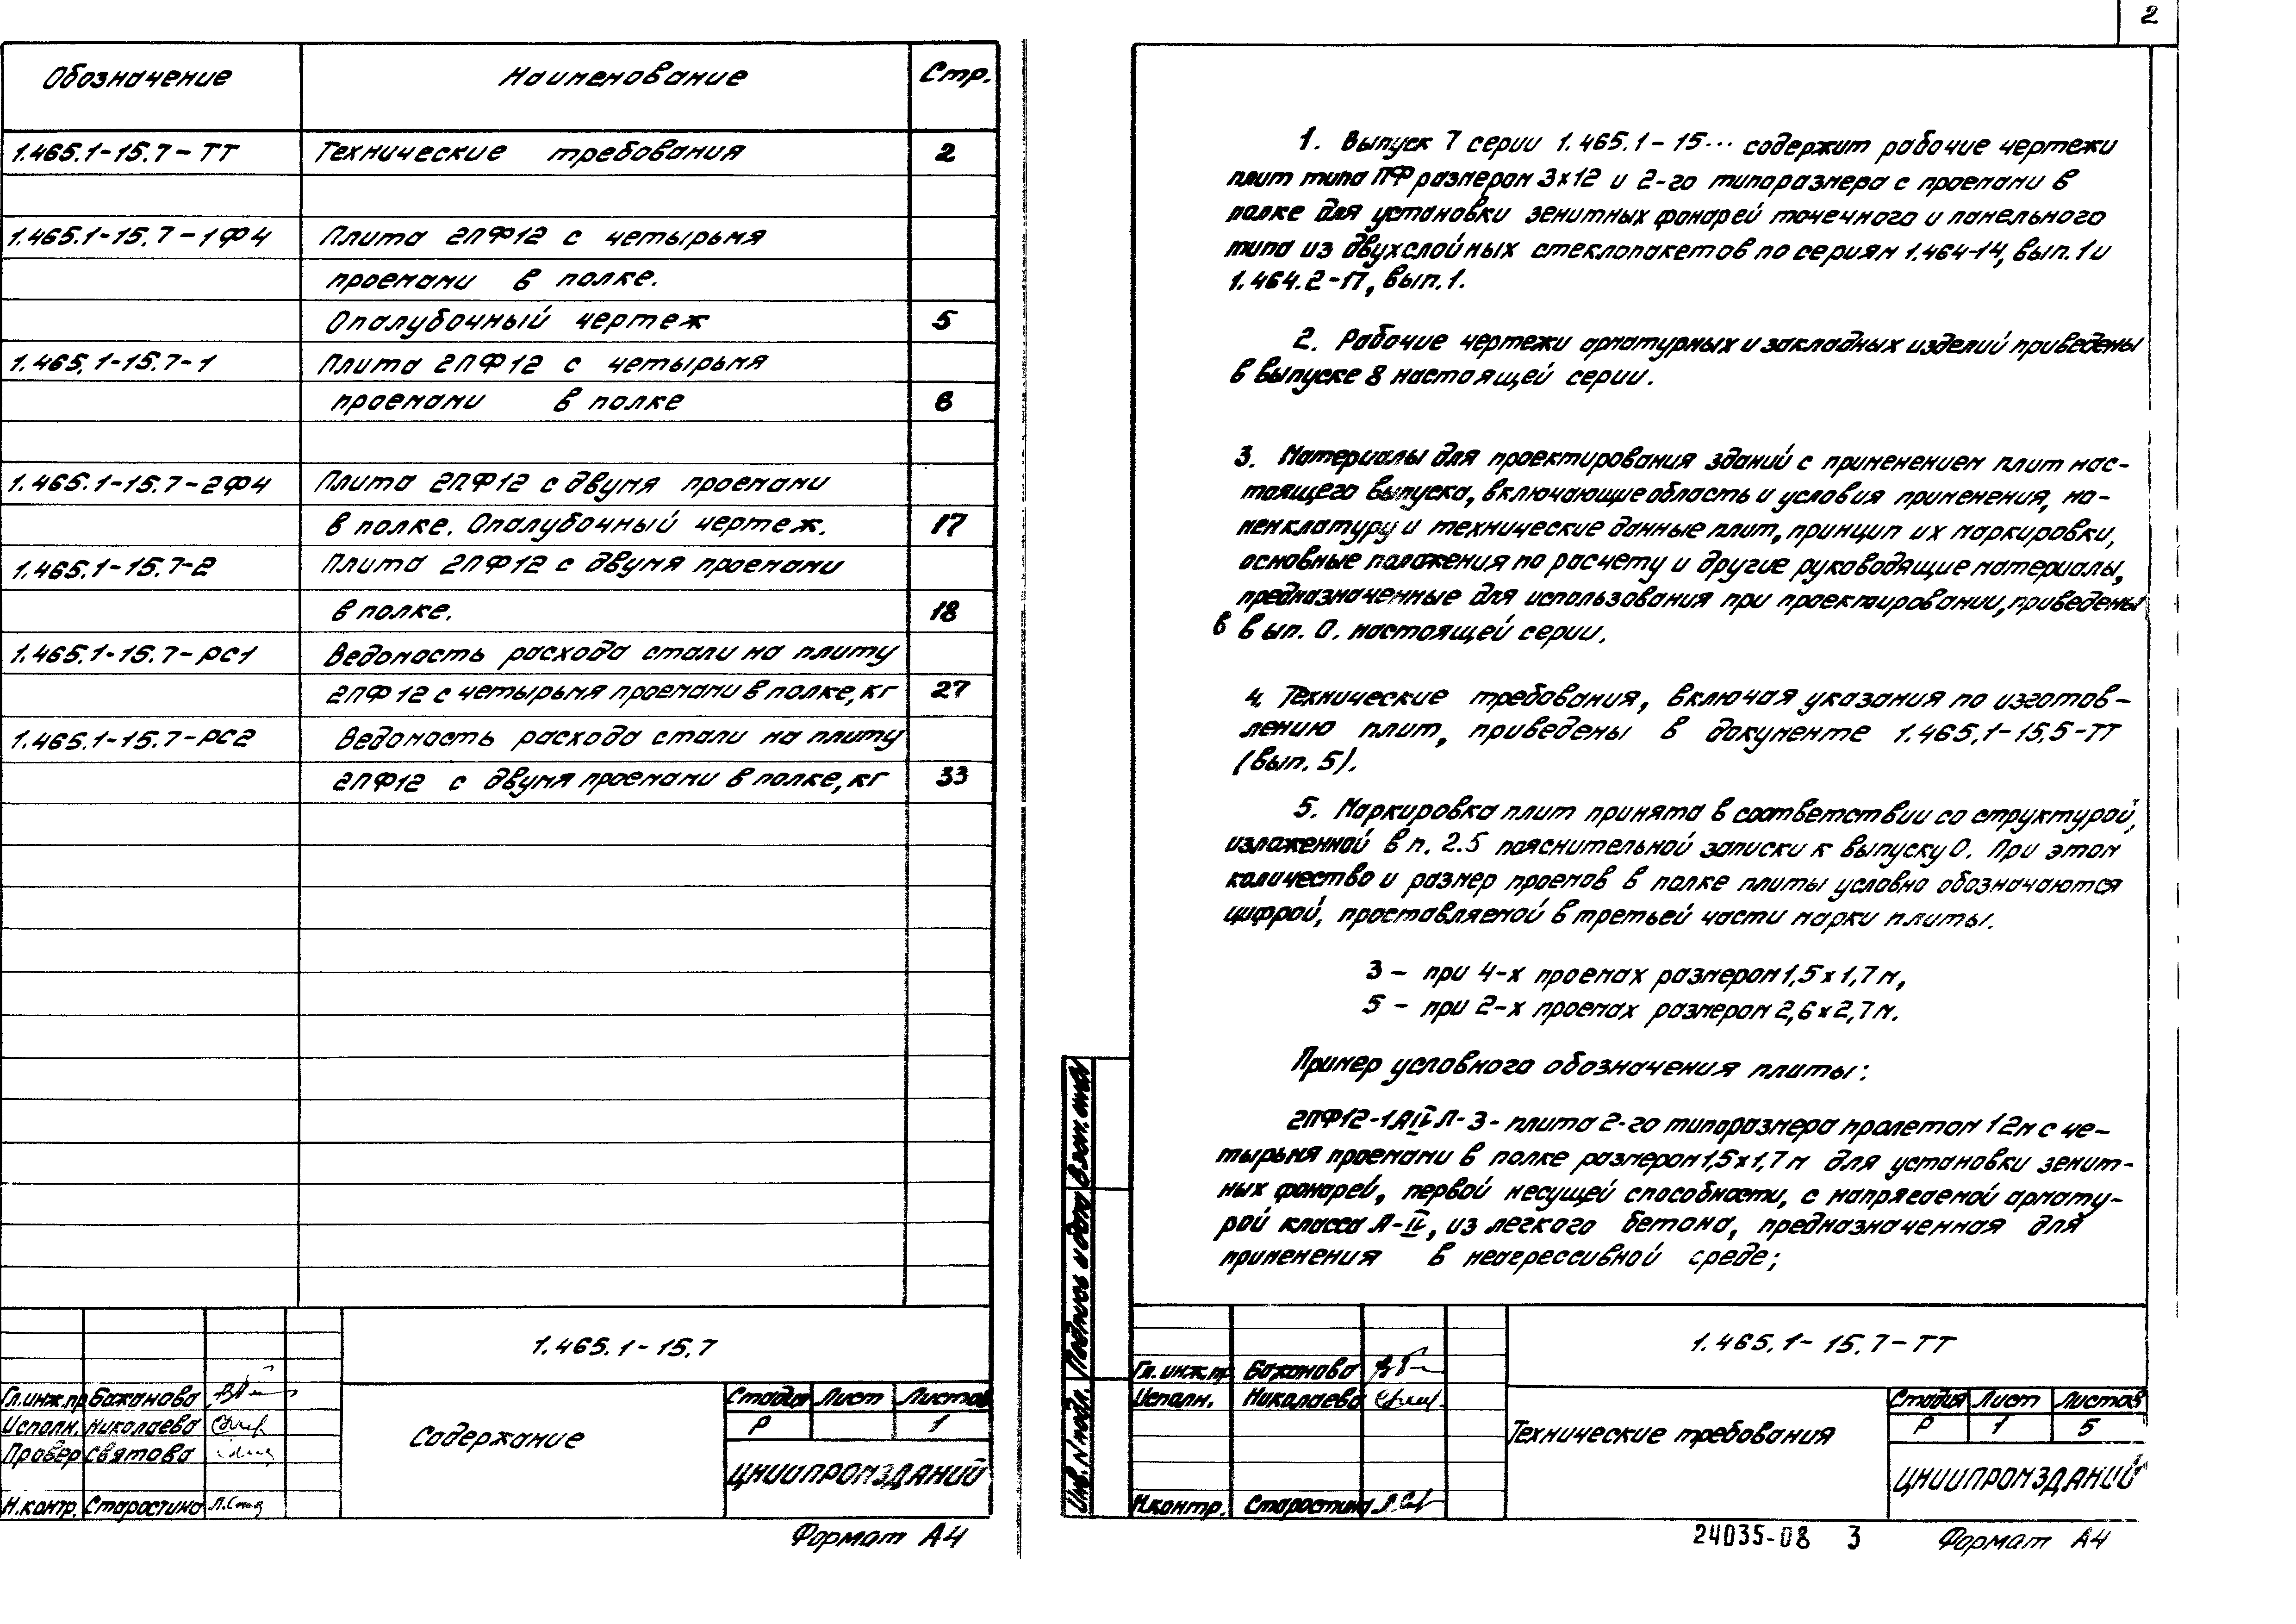 Обозначение Наименование Стр.
1.465.1-15.7-ТТ Технические требования 2
1.465.1-15.7-1Ф4 Плита 2ПФ12 с четырьмя
проемами в полке.
Опалубочный чертеж 5
1.465.1-15.7-1 Плита 2ПФ12 с четырьмя
проемами в полке 6
1.465.1-15.7-2Ф4 Плита 2ПФ12 с двумя проемами
в полке. Опалубочный чертеж. 17
1.465.1-15.7-2 Плита 2ПФ12 с двумя проемами
в полке. 18
1.465.1-15.7-РС1 Ведомость расхода стали на плиту
2ПФ12 с четырьмя проемами в полке, кг 27
1.465.1-15.7-РС2 Ведомость расхода стали на плиту
2ПФ12 с двумя проемами в полке, кг 33
1.465.1-15.7
Гл.инж.пр Бажанова
Исполн. Николаева
Провер Святова
Н.контр. Старостина
Содержание
Стадия Лист Листов
Р 1
ЦНИИПРОМЗДАНИЙ
Формат А4
2
1. Выпуск 7 серии 1.465.1-15... содержит рабочие чертежи
плит типа ПФ размером 3х12 и 2-го типоразмера с проемами в
полке для установки зенитных фонарей точечного и панельного
типа из двухслойных стеклопакетов по сериям 1.464-14, вып.1 и
1.464.2-17, вып.1.
2. Рабочие чертежи арматурных и закладных изделий приведены
в выпуске 8 настоящей серии.
3. Материалы для проектирования зданий с применением плит нас-
тоящего выпуска, включающие область и условия применения, но-
менклатуру и технические данные плит, принцип их маркировки,
основные положения по расчету и другие руководящие материалы,
предназначенные для использования при проектировании, приведены
в вып. 0. настоящей серии.
4. Технические требования, включая указания по изготов-
лению плит, приведены в документе 1.465.1-15.5-ТТ
(вып. 5).
5. Маркировка плит принята в соответствии со структурой,
изложенной в п. 2.5 пояснительной записки к выпуску 0. При этом
количество и размер проемов в полке плиты условно обозначаются
цифрой, проставляемой в третьей части марки плиты.
3 - при 4-х проемах размером 1,5х1,7м,
5 - при 2-х проемах размером 2,6х2,7м.
Пример условного обозначения плиты:
2ПФ12-1АIVЛ-3- плита 2-го типоразмера пролетом 12м с че-
тырьмя проемами в полке размером 1,5х1,7м для установки зенит-
ных фонарей, первой несущей способности, с напрягаемой армату-
рой класса А-IV, из легкого бетона, предназначенная для
применения в неагрессивной среде;
Инв.N подл. Подпись и дата Взам. инв.N
1.465.1-15.7-ТТ
Гл.инж.пр. Бажанова
Исполн. Николаева
Н.контр. Старостина
Технические требования
Стадия Лист Листов
Р 1 5
ЦНИИПРОМЗДАНИЙ
24035-08 3 Формат А4